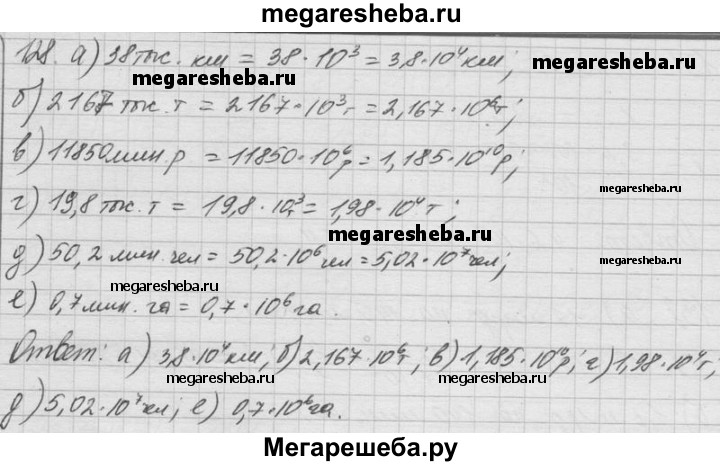 megaresheba.ru
128. а) 38 тыс. км = 38 · 10³ = 3,8 · 10⁴ км;
megaresheba.ru
б) 2167 тыс. т = 2167 · 10³ т = 2,167 · 10⁶ т;
в) 11850 млн р = 11850 · 10⁶ р = 1,185 · 10¹⁰ р;
megaresheba.ru
г) 19,8 тыс. т = 19,8 · 10³ т = 1,98 · 10⁴ т;
megaresheba.ru
д) 50,2 млн. чел = 50,2 · 10⁶ чел = 5,02 · 10⁷ чел;
е) 0,7 млн. га = 0,7 · 10⁶ га.
Ответ: а) 3,8 · 10⁴ км; б) 2,167 · 10⁶ т; в) 1,185 · 10¹⁰ р; г) 1,98 · 10⁴ т,
megaresheba.ru megaresheba.ru
д) 5,02 · 10⁷ чел; е) 0,7 · 10⁶ га.
Мегарешеба.ру